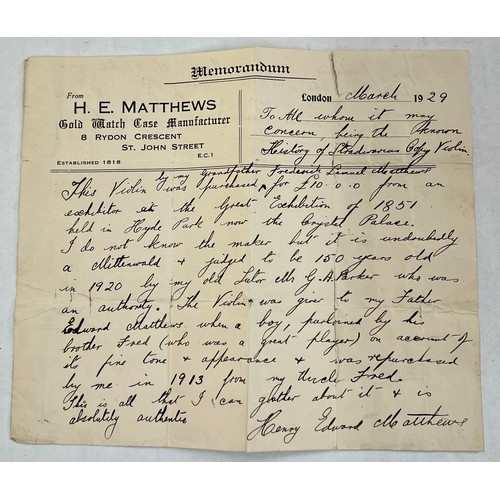 Memorandum
From
H. E. MATTHEWS
Gold Watch Case Manufacturer
8 RYDON CRESCENT
ST. JOHN STREET
E.C.1
ESTABLISHED 1816
London March 1929
To All whom it may
concern being the known
History of Stradivarius Copy Violin.
by my Grandfather Frederick Lionel Matthews
This Violin was purchased for £10.0.0 from an
exhibitor at the Great Exhibition of 1851
held in Hyde Park now the Crystal Palace.
I do not know the maker but it is undoubtedly
a Mittenwald & judged to be 150 years old
in 1920 by my old Tutor Mr G. A. Parker who was
an authority. The Violin was given to my Father
Edward Matthews when a boy, purloined by his
brother Fred (who was a great player) on account of
its fine tone & appearance & was repurchased
by me in 1913 from my Uncle Fred.
This is all that I can gather about it & is
absolutely authentic
Henry Edward Matthews